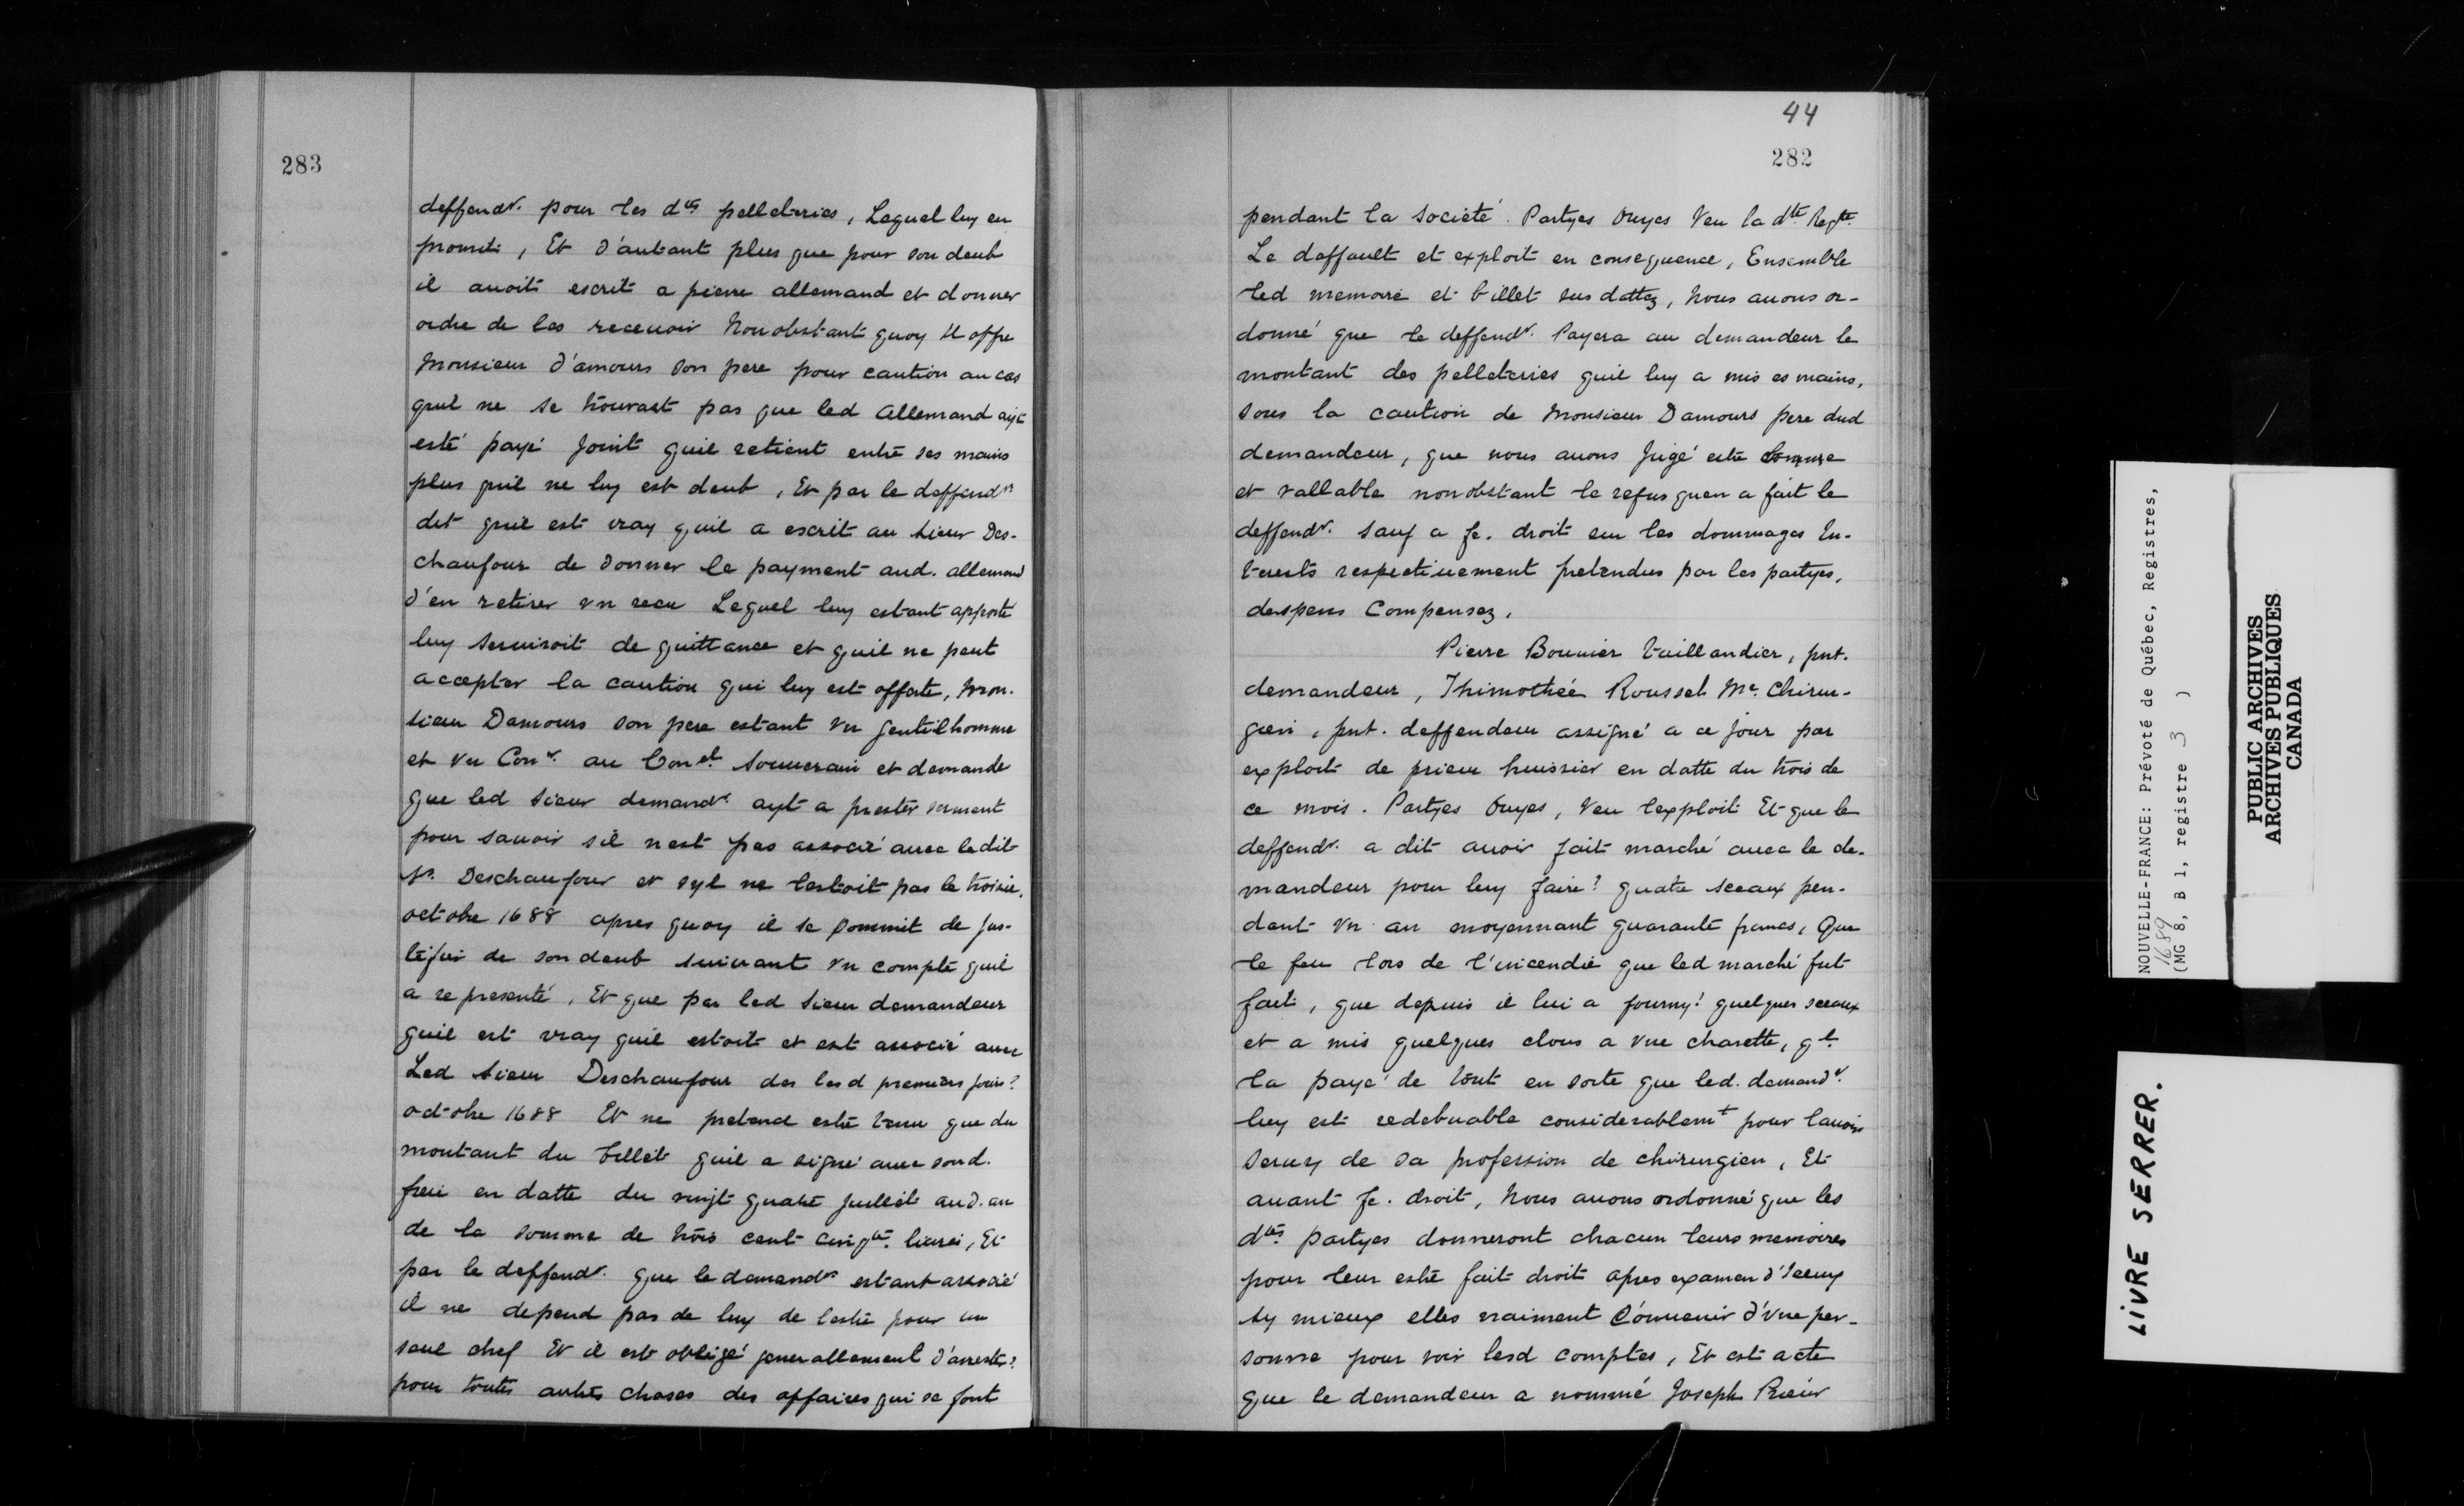 283
deffendr. pour les dtes pelleteries, Lequel luy en
promit, Et d'autant plus que pour son deub
il auoit escrit a pierre allemand et donner
ordre de les receuoir Nonobstant quoy Il offre
Monsieur d'amours son pere pour caution au cas
quil ne se trouvast pas que led allemand ayt
esté payé Joint quil retient entre ses mains
plus quil ne luy est deub, Et par le deffendr
dit quil est vray quil a escrit au Sieur Des-
chaufour de donner le payment aud. allemand
d'en retirer vn receu Lequel luy estant apporté
luy seruiroit de quittance et quil ne peut
accepter la caution qui luy est offerte, Mon-
sieur Damours son pere estant vn gentilhomme
et vn Conr. au Conel Souuerain et demande
que led Sieur demandr. ayt a prester serment
pour sauoir sil nest pas associé auec ledit
Sr. Deschaufour et syl ne lestoit pas le troisie.
octobre 1688 apres quoy il se soummit de jus-
tifier de son deub suiuant vn compte quil
a representé, Et que par led Sieur demandeur
quil est vray quil estoit et est associé auec
Led Sieur Deschaufour des lesd premiers jours?
octobre 1688 Et ne pretend estre tenu que du
montant du billet quil a signé auec sond.
frere en datte du vingt quatre juillet aud. an
de la somme de trois cent cinqte. liures, Et
par le deffendr. que le demandr estant associé
il ne depend pas de luy de lestre pour un
seul chef Et il est obligé generallement d'arrester?
pour toutes autres choses des affaires qui se font
44
282
pendant la societé. Partyes Ouyes Veu la dte Reqte.
Le deffault et exploit en consequence, Ensemble
led memoire et billet sus dattez, Nous auons or-
donné que le deffendr. Payera au demandeur le
montant des pelleteries quil luy a mis es mains,
sous la caution de Monsieur Damours pere dud
demandeur, que nous auons Jugé estre
et vallable nonobstant le refus quen a fait le
deffendr. sauf a fe. droit sur les dommages In-
terests respectiuement pretendus par les partyes,
despens Compensez.
Pierre Bouuier taillandier, pnt.
demandeur, Thimothée Roussel Me. Chirur-
gien, pnt. deffendeur assigné a ce jour par
exploit de prieur huissier en datte du trois de
ce mois. Partyes Ouyes, Veu lexploit Et que le
deffendr. a dit auoir fait marché auec le de-
mandeur pour luy faire? quatre sceaux pen-
dant vn an moyennant quarante francs, Que
le feu lors de l'incendie que led marché fut
fait, que depuis il lui a fourny? quelques sceaux
et a mis quelques clous a vne charette, ql.
la payé de tout en sorte que led. demandr.
luy est redebuable considerablemt pour lauoir
seruy de sa profession de chirurgien, Et
auant fe. droit, Nous auons ordonné que les
dtes. partyes donneront chacun leurs memoires
pour leur estre fait droit apres examen d'Iceux
sy mieux elles naiment Conuenir d'vne per-
sonne pour voir lesd comptes, Et est acte
que le demandeur a nommé Joseph Prieur
NOUVELLE-FRANCE: Prévoté de Québec, Registres,
1689
(MG 8, B 1, registre 3 )
PUBLIC ARCHIVES
ARCHIVES PUBLIQUES
CANADA
LIVRE SERRER.